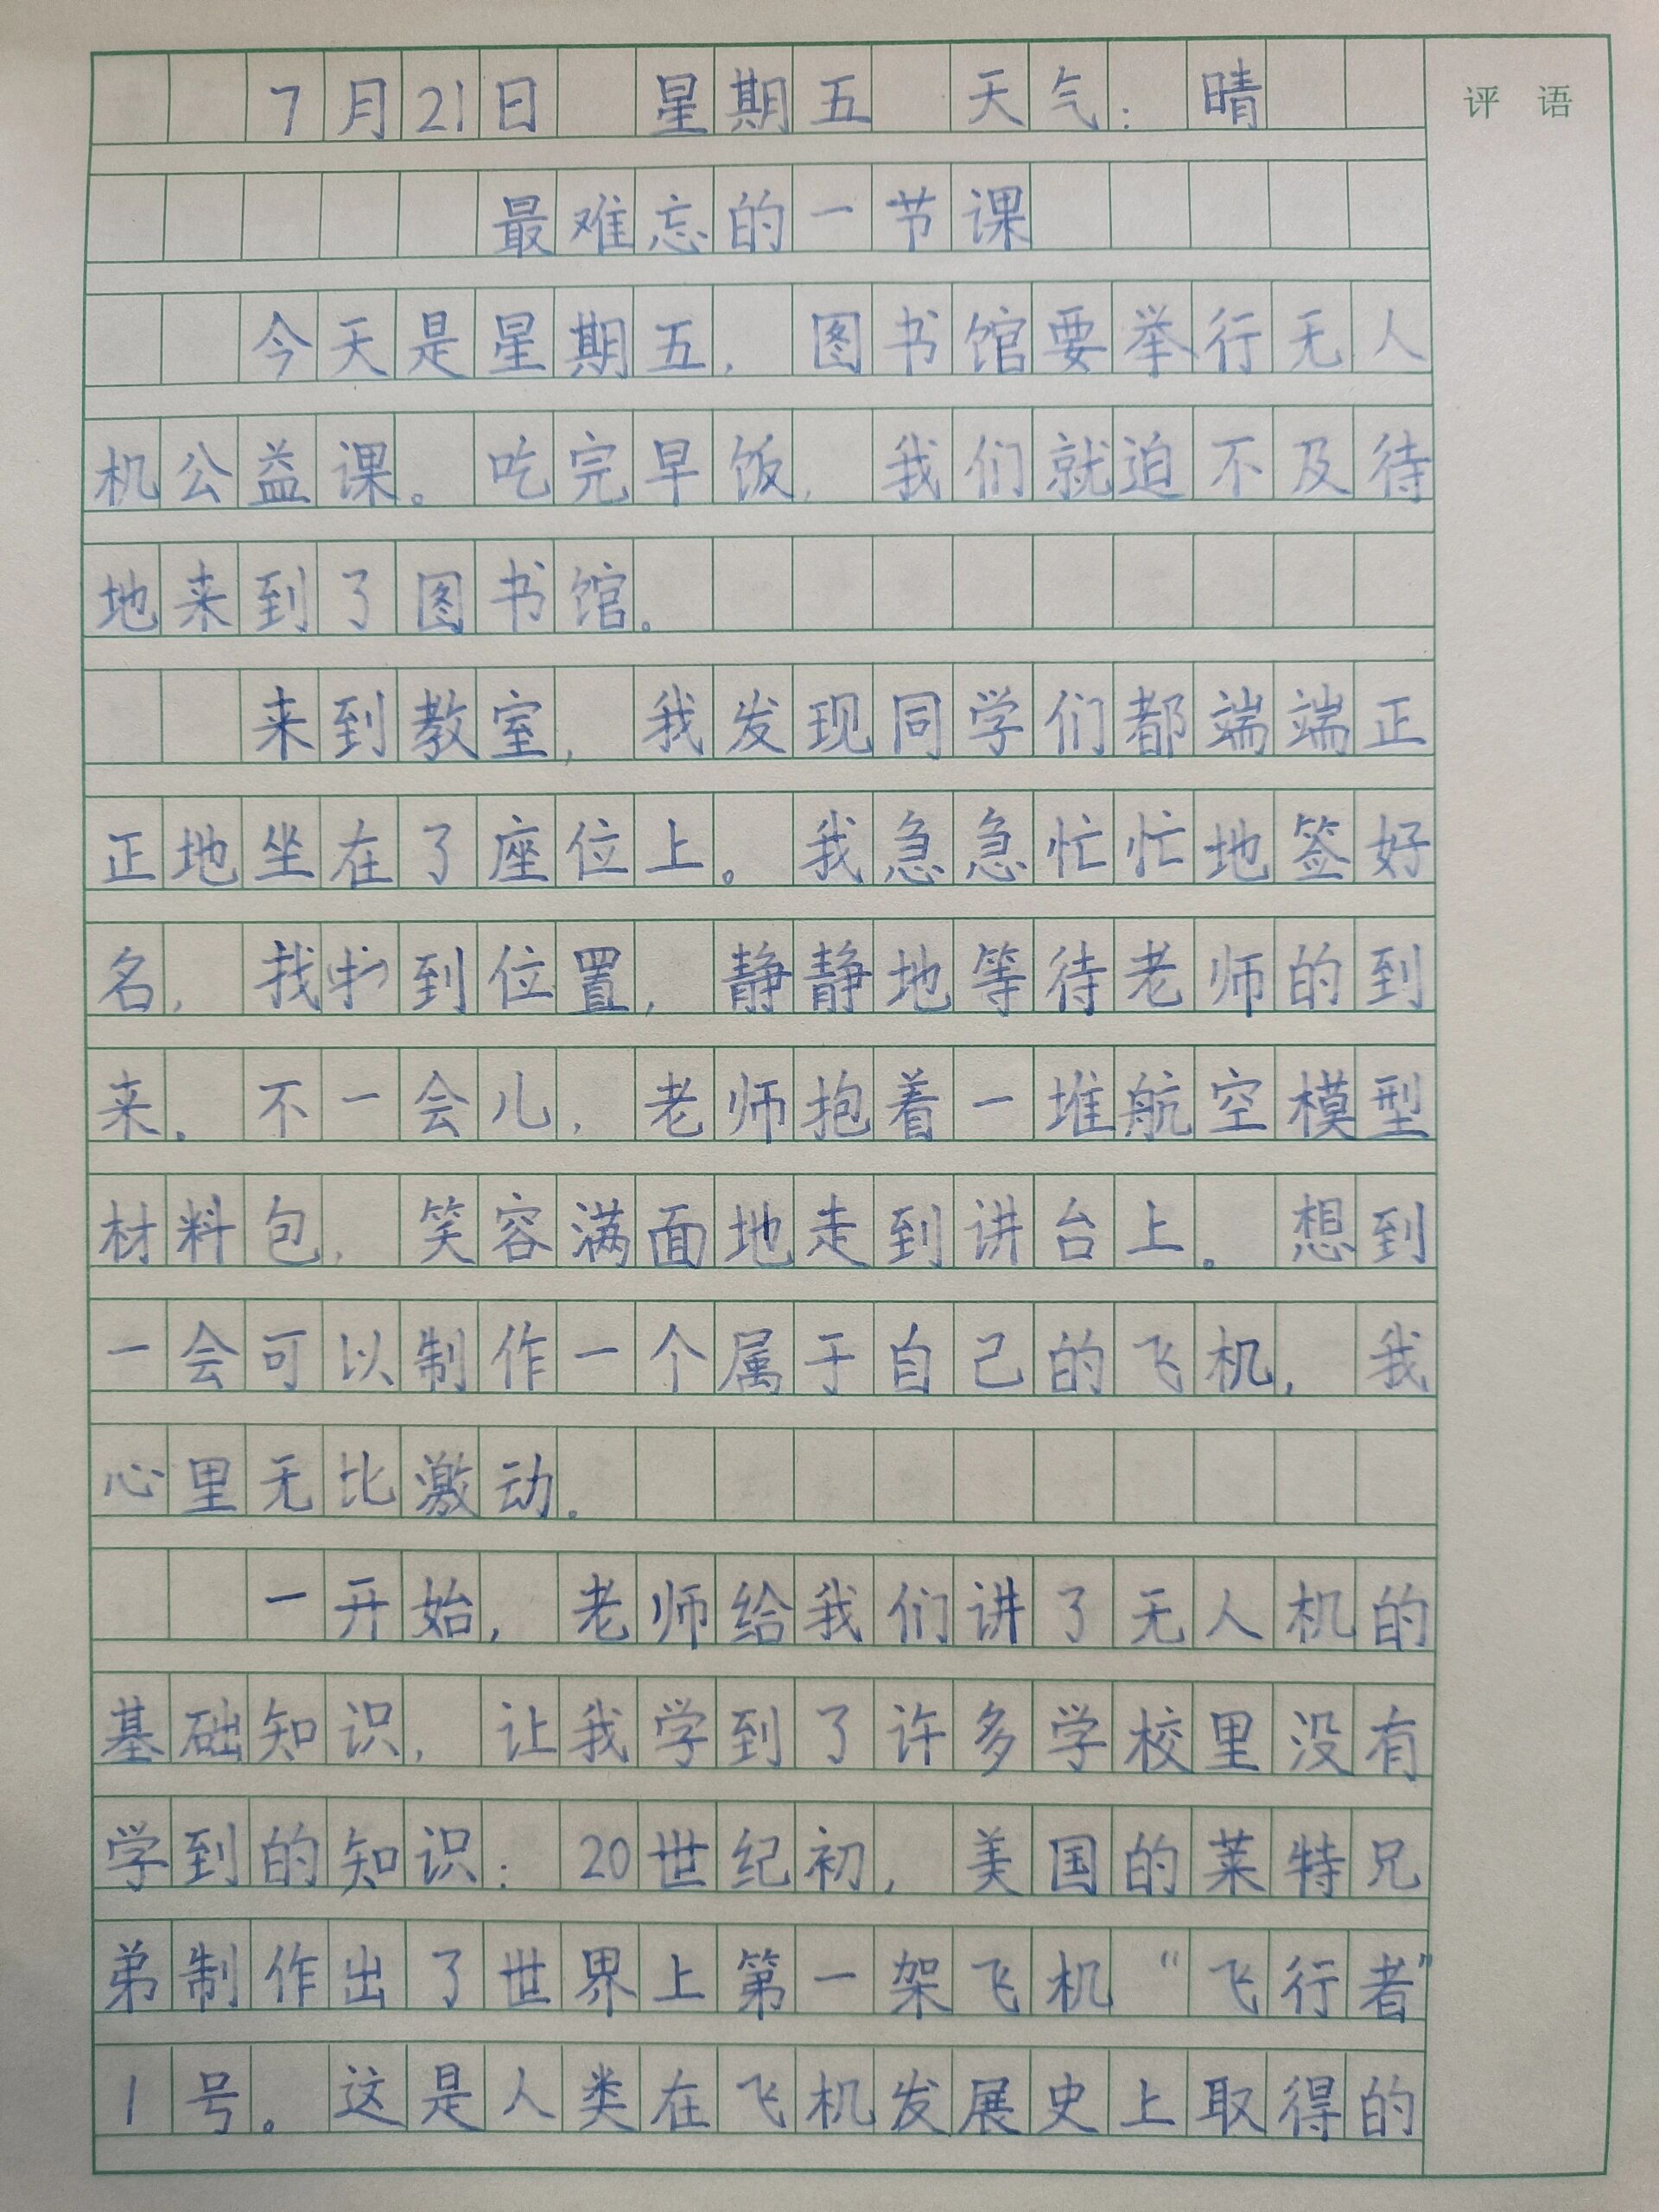 7月21日 星期五 天气:晴
评 语
最难忘的一节课
今天是星期五,图书馆要举行无人
机公益课。吃完早饭,我们就迫不及待
地来到了图书馆。
来到教室,我发现同学们都端端正
正地坐在了座位上。我急急忙忙地签好
名,找到位置,静静地等待老师的到
来。不一会儿,老师抱着一堆航空模型
材料包,笑容满面地走到讲台上。想到
一会可以制作一个属于自己的飞机,我
心里无比激动。
一开始,老师给我们讲了无人机的
基础知识,让我学到了许多学校里没有
学到的知识:20世纪初,美国的莱特兄
弟制作出了世界上第一架飞机“飞行者”
1号。这是人类在飞机发展史上取得的